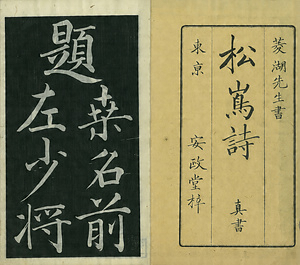 菱湖先生書
松嶌詩
真書
東京
安政堂梓
題
桒名前
左少将